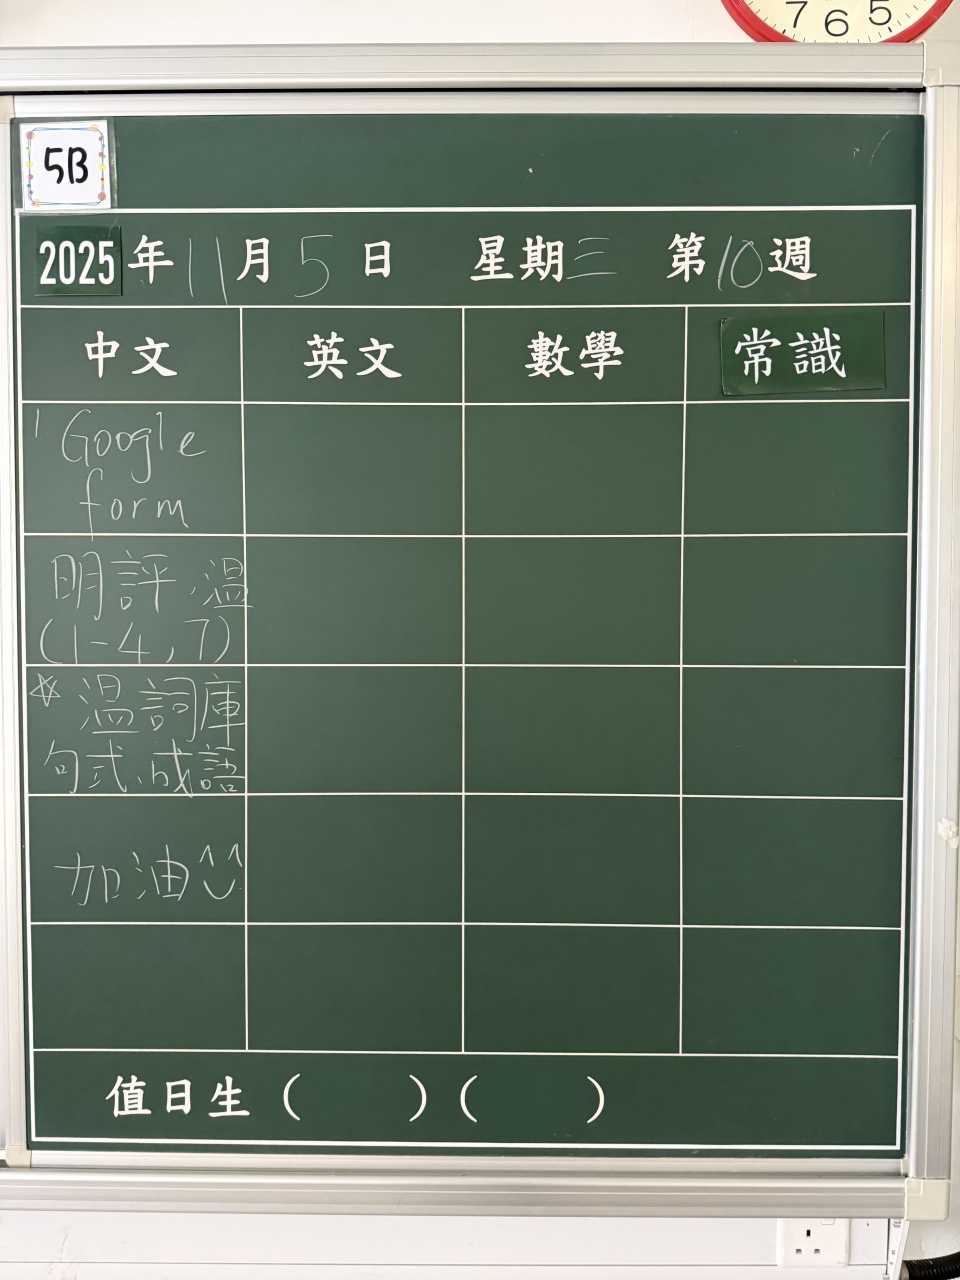 7 6 5
5B
2025年11月5日 星期三 第10週
中文 英文 數學 常識
1 Google
form
明評.溫
(1-4,7)
☆溫詞庫
句式.成語
加油
值日生 ( ) ( )